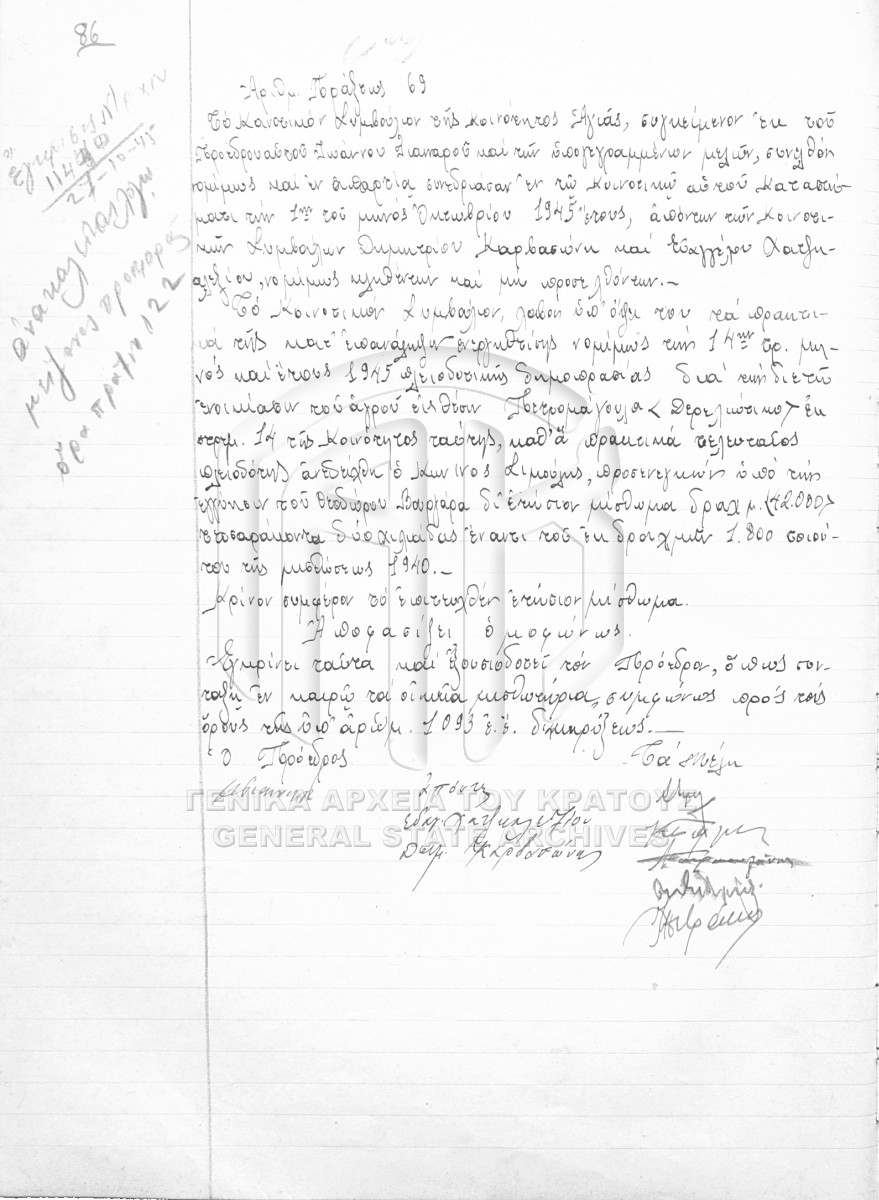 86
Ἀριθμ. Πράξεως 69
Τὸ Κοινοτικὸν Συμβούλιον τῆς Κοινότητος Ἁγιᾶς, συγκείμενον ἐκ τοῦ
Προέδρου αὐτοῦ Ἰωάννου καὶ τῶν ὑπογεγραμμένων μελῶν, συνελθὸν
νομίμως καὶ ἐν ἀπαρτίᾳ συνεδριάσαν ἐν τῷ Κοινοτικῷ αὐτοῦ Καταστή-
ματι τὴν 1ην τοῦ μηνὸς Ὀκτωβρίου 1945 ἔτους, ἀπόντων τῶν Κοινοτι-
κῶν Συμβούλων Δημητρίου Καρβασώνη καὶ Εὐαγγέλου Χατζη-
αλεξίου, νομίμως κληθέντων καὶ μὴ προσελθόντων.-
Τὸ Κοινοτικὸν Συμβούλιον, λαβὸν ὑπ' ὄψει του τὰ πρακτι-
κὰ τῆς κατ' ἐπανάληψιν ἐνεργηθείσης νομίμως τὴν 14ην τρ. μη-
νὸς καὶ ἔτους 1945 πλειοδοτικῆς δημοπρασίας διὰ τὴν διετῆ
ἐνοικίασιν τοῦ ἀγροῦ εἰς θέσιν Πετρομάγουλα <Δερελιώτικο> ἐκ
στρμ. 14 τῆς Κοινότητος ταύτης, καθ' ἃ πρακτικὰ τελευταῖος
πλειοδότης ἀνεδείχθη ὁ Σιμούλης, προσενεγκὼν ὑπὸ τὴν
ἐγγύησιν τοῦ Θεοδώρου Βουλγάρα δι' ἐτήσιον μίσθωμα δραχμ. (42.000)
τεσσαράκοντα δύο χιλιάδας ἔναντι τοῦ ἐκ δραχμῶν 1.800 τοιού-
του τῆς μισθώσεως 1940.-
Κρῖνον συμφέρον τὸ ἐπιτευχθὲν ἐτήσιον μίσθωμα.
Ἀποφασίζει ὁμοφώνως.
Ἐγκρίνει ταῦτα καὶ ἐξουσιοδοτεῖ τὸν Πρόεδρον, ὅπως συν-
τάξῃ ἐν καιρῷ τὰ οἰκεῖα μισθωτήρια, συμφώνως πρὸς τοὺς
ὅρους τῆς ὑπ' ἀριθμ. 1093 ἐ.ἔ. διακηρύξεως.-
Ὁ Πρόεδρος
Τὰ Μέλη
Ἀπόντες
Εὐαγ. Χατζηαλεξίου
Δημ. Καρβασώνης
Ἐγκρίσεις Νομ/χου
27-10-45
ἀνεκλήθη λόγῳ
μείζονος προσφορᾶς
ὅρα πρᾶξιν 122
ΓΕΝΙΚΑ ΑΡΧΕΙΑ ΤΟΥ ΚΡΑΤΟΥΣ
GENERAL STATE ARCHIVES